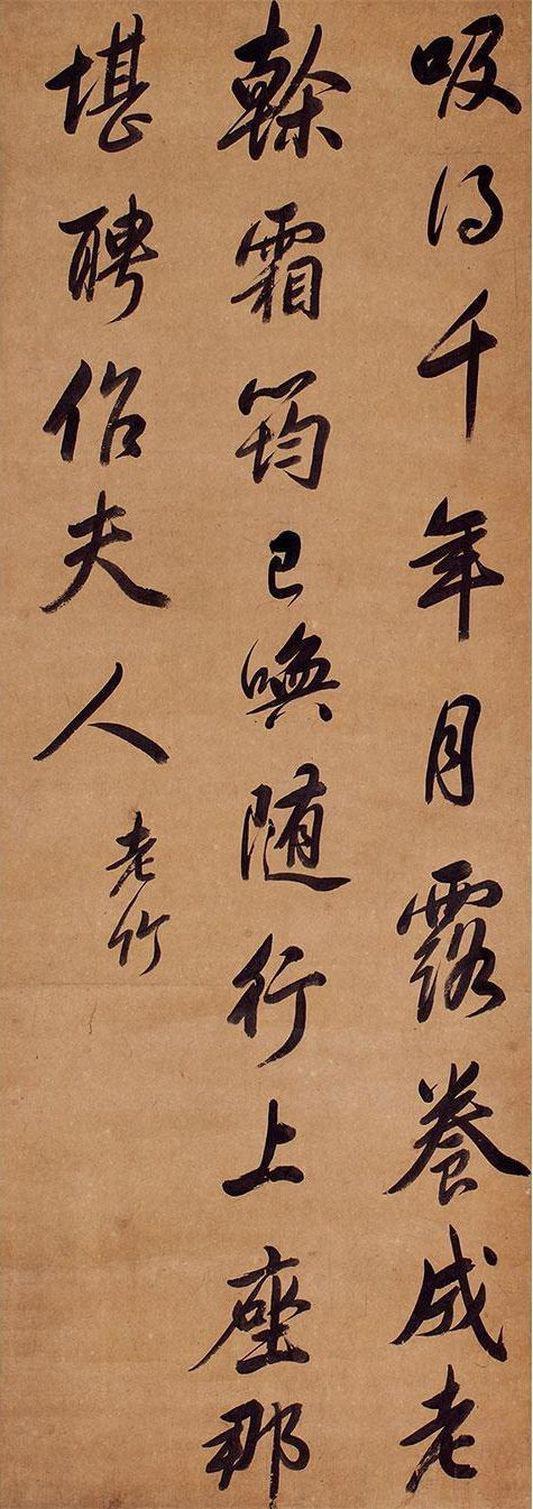 吸得千年月露養成老
榦霜筠已喚随行上座那
堪聘作夫人
老竹